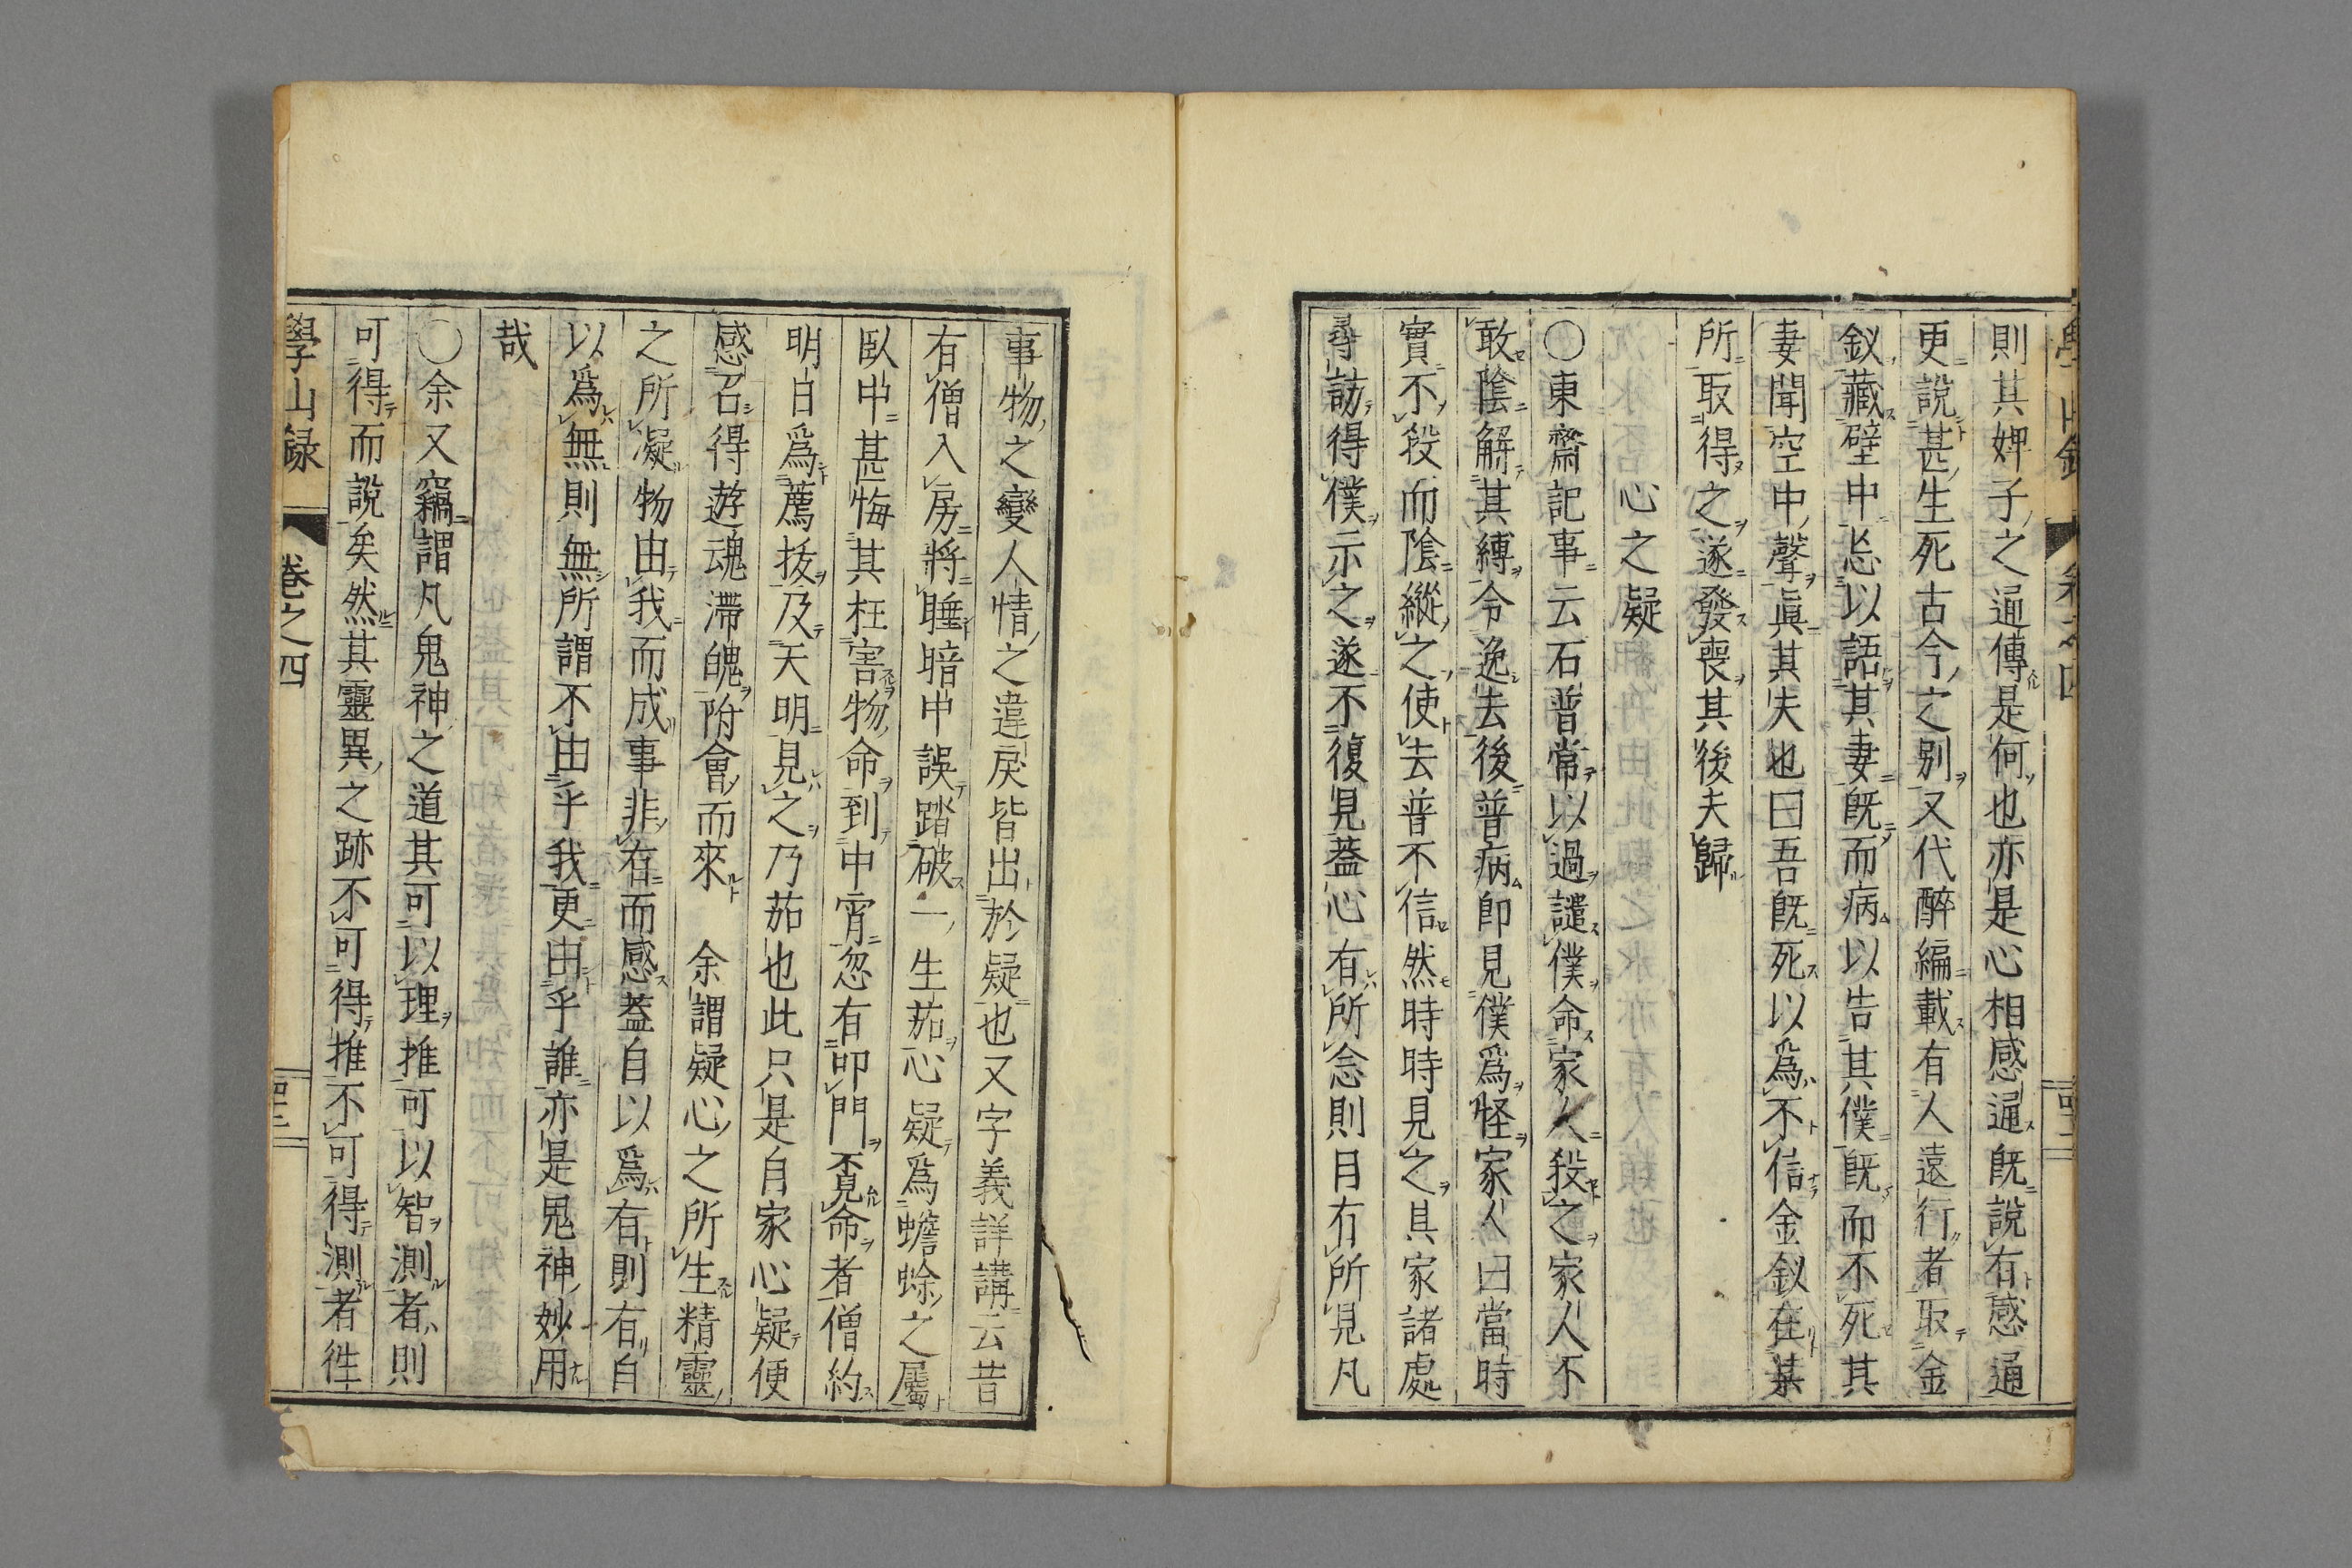 則其婢子之通傳是何也亦是心相感通既說有感通
更說甚生死古今之別又代醉編載有人遠行者取金
釵藏壁中忘以語其妻既而病以告其僕既而不死其
妻聞空中聲眞其夫也曰吾既死以爲不信金釵在某
所取得之遂發喪其後夫歸
心之疑
〇東齋記事云石普常以過譴僕命家人殺之家人不
敢陰解其縛令逸去後普病即見僕爲怪家人曰當時
實不殺而陰縱之使去普不信然時時見之具家諸處
尋訪得僕示之遂不復見蓋心有所念則目有所見凡
事物之變人情之違戾皆出於疑也又字義詳講云昔
有僧入房將睡暗中誤踏破一生茄心疑爲蟾蜍之屬
臥中甚悔其枉害物命到中宵忽有叩門覔命者僧約
明日爲薦拔及天明見之乃茄也此只是自家心疑便
感召得遊魂滯魄附會而來　余謂疑心之所生精靈
之所凝物由我而成事非在而感蓋自以爲有則有自
以爲無則無所謂不由乎我更由乎誰亦是鬼神妙用
哉
〇余又竊謂凡鬼神之道其可以理推可以智測者則
可得而說矣然其靈異之跡不可得推不可得測者徃
學山録
卷之四
四三